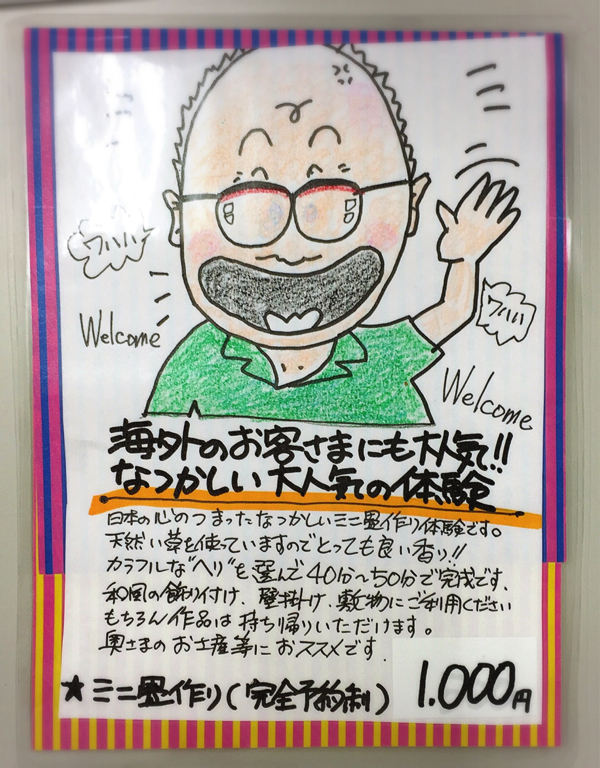 ワハハハ
Welcome
ワハハ
Welcome
海外のお客さまにも大人気!!
なつかしい大人気の体験
日本の心のつまったなつかしいミニ畳作り体験です。
天然い草を使っていますのでとっても良い香り!!
カラフルな"ヘリ"を選んで40分〜50分で完成です。
和風の飾り付け、壁掛け、敷物にご利用ください
もちろん作品は持ち帰りいただけます。
奥さまのお土産等におススメです.
★ミニ畳作り(完全予約制)
1.000円